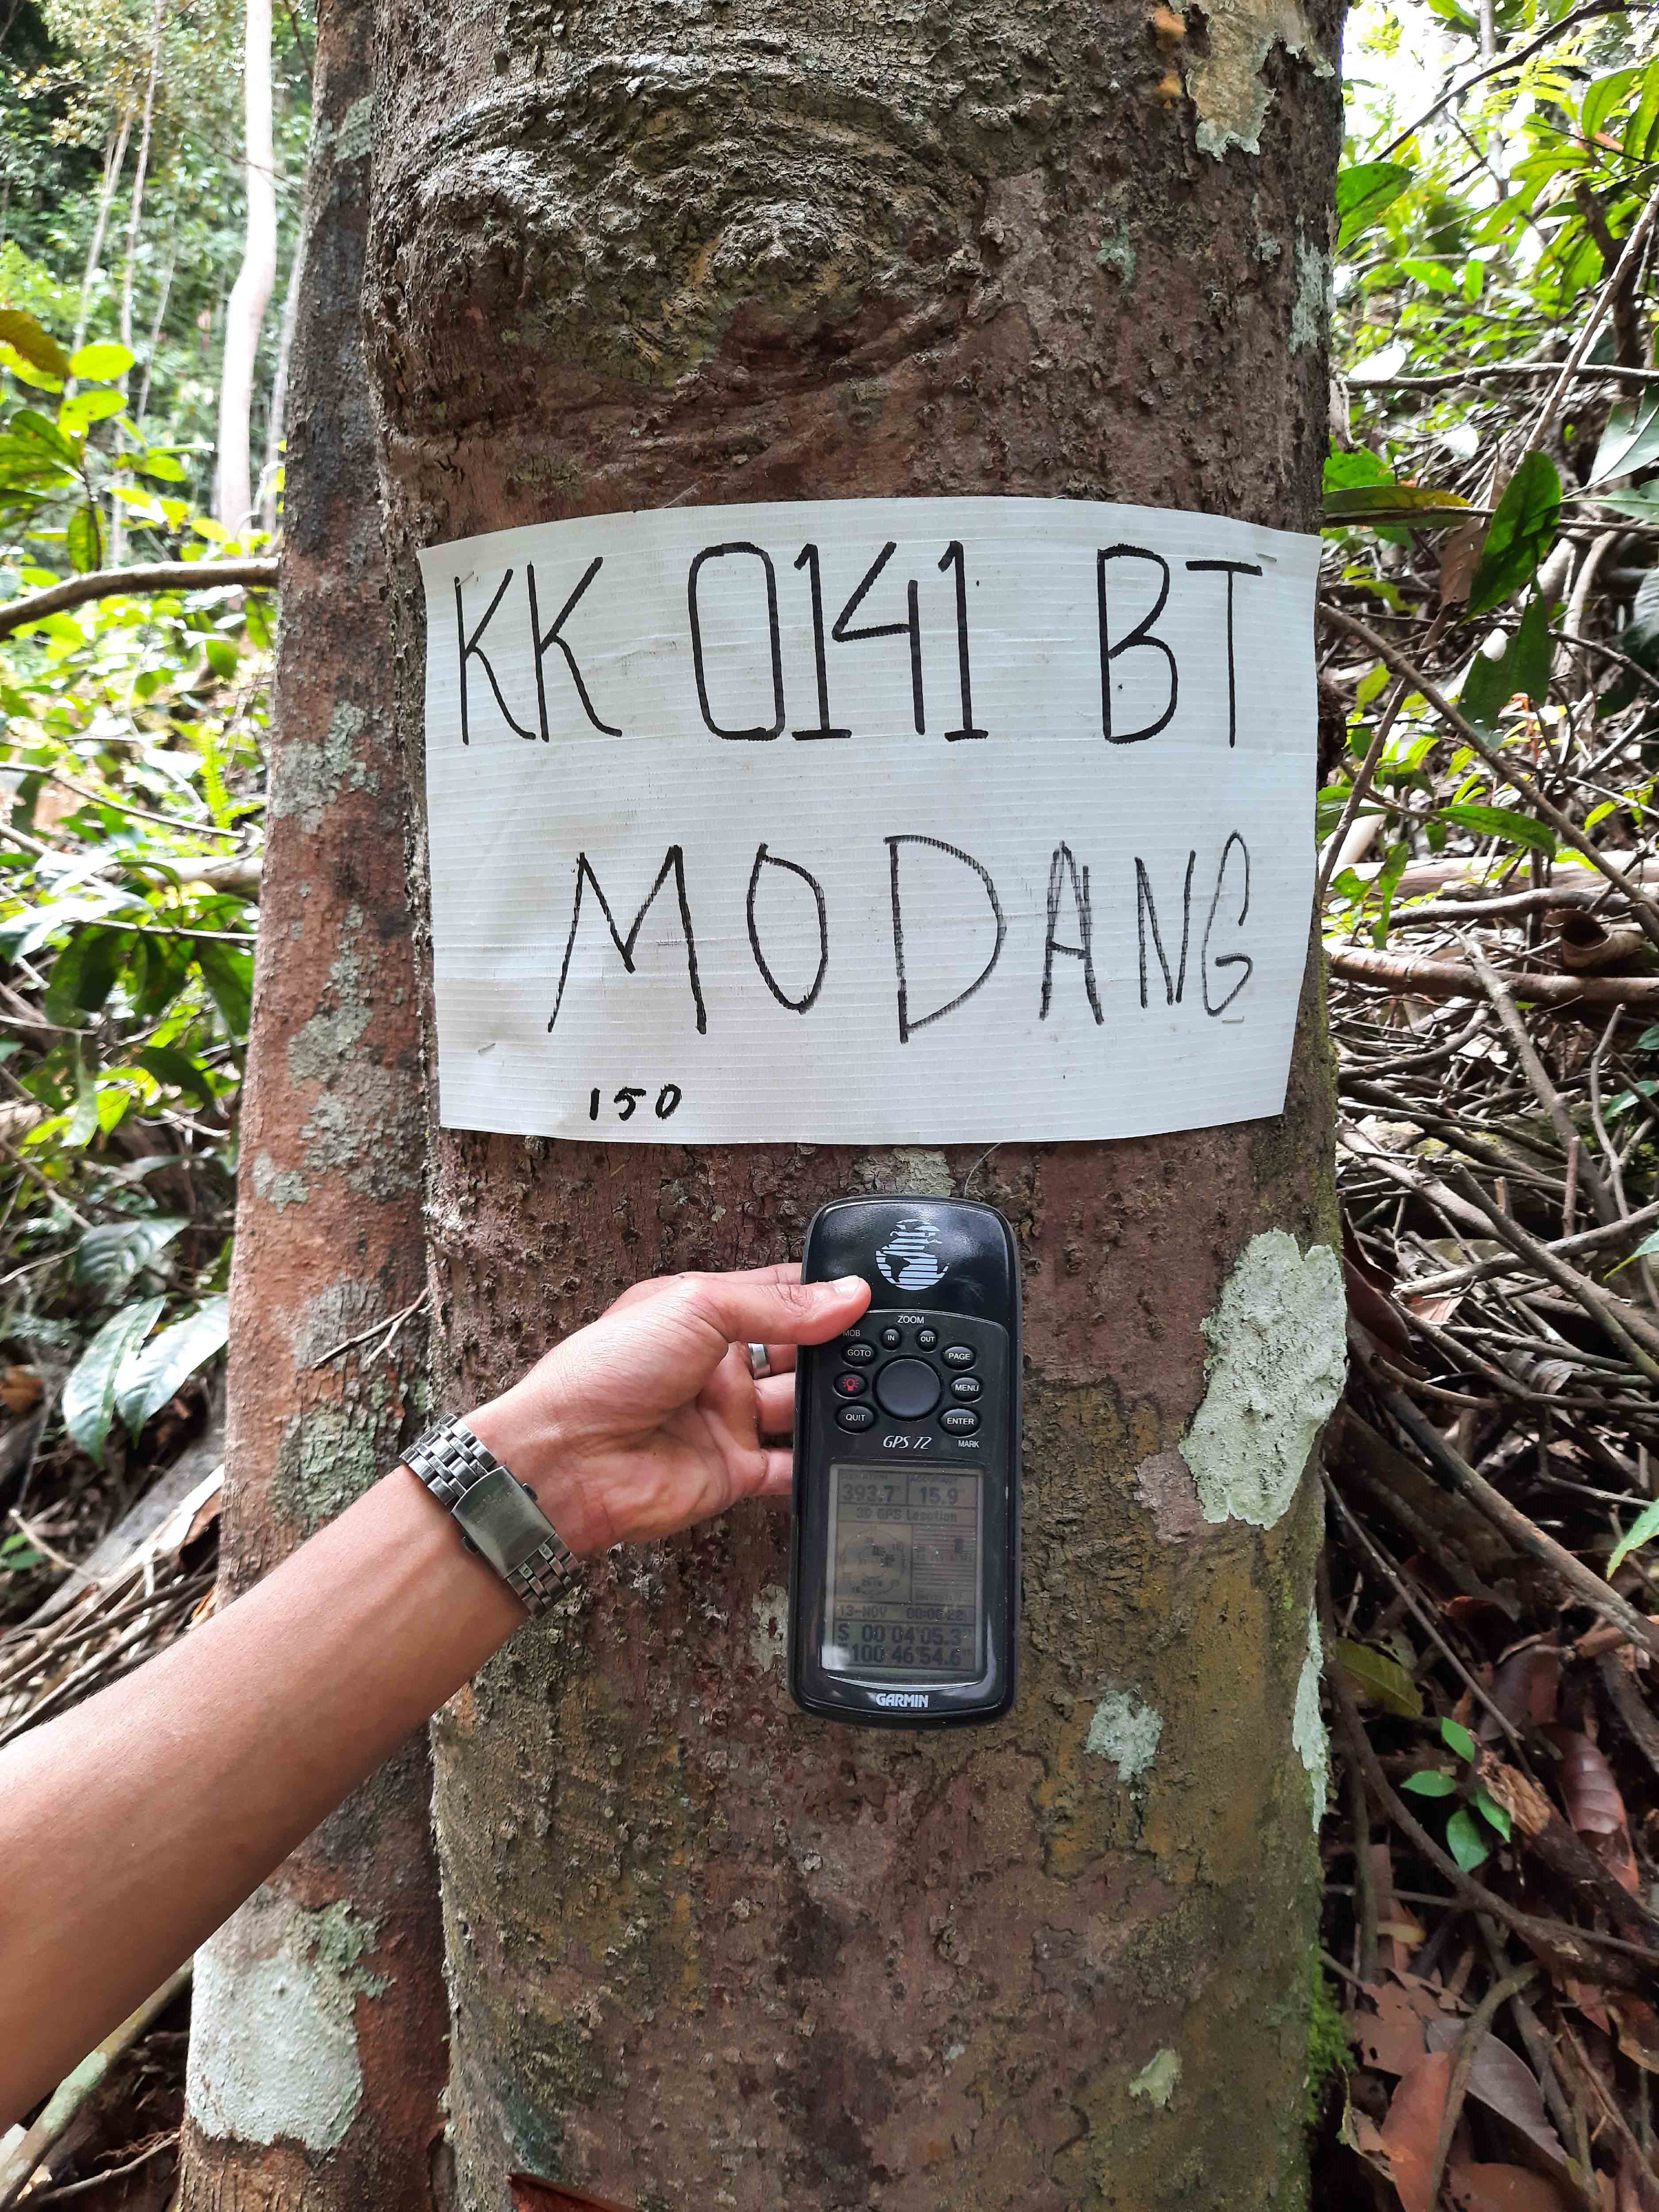 KK 0141 BT
MODANG
150
ZOOM
MOB
IN OUT
GOTO PAGE
MENU
QUIT ENTER
GPS 72 MARK
393.7 15.9
3D GPS Location
13-NOV 00:05:22
S 00°04'05.3"
100°46'54.6"
GARMIN